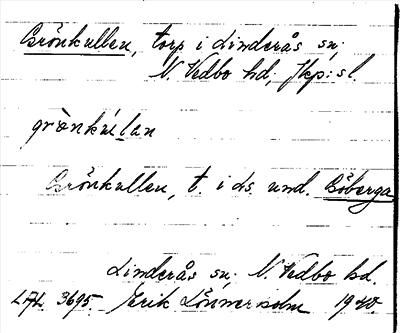 Grönkullen, torp i Linderås sn;
N. Vedbo hd; Jkp: sl.
grònkúlan
Grönkullen, t. i ds. und. Böberga
Linderås sn; N. Vedbo hd.
LAL 3695. Erik Lönnerholm 1940.